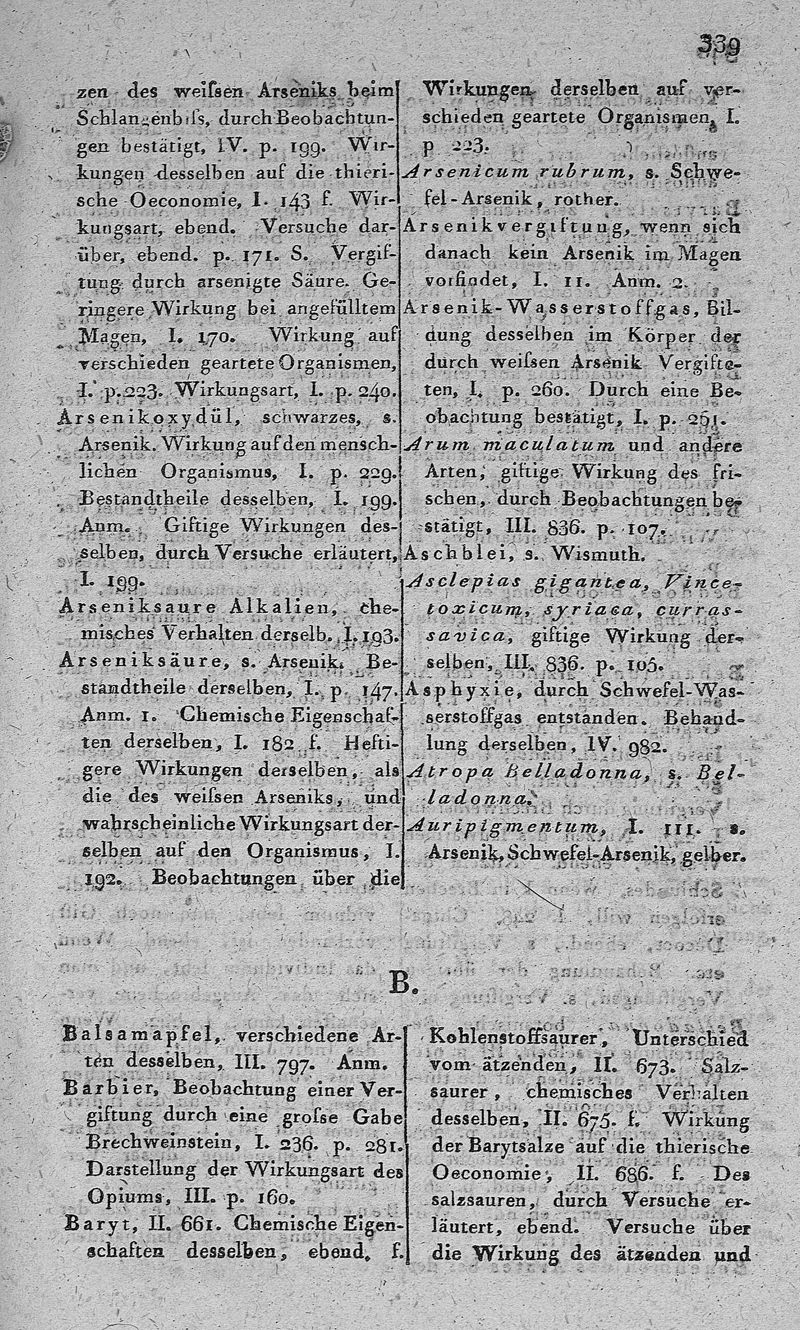 339
zen des weiſsen Arseniks beim
Schlangenbiſs, durch Beobachtun-
gen bestätigt, IV. p. 199. Wir-
kungen desselben auf die thieri-
sche Oeconomie, I. 143 f. Wir-
kungsart, ebend. Versuche dar-
über, ebend. p. 171. S. Vergif-
tung durch arsenigte Säure. Ge-
ringere Wirkung bei angefülltem
Magen, I. 170. Wirkung auf
verschieden geartete Organismen,
I. p. 223. Wirkungsart, I. p. 240.
Arsenikoxydül, schwarzes, s.
Arsenik. Wirkung auf den mensch-
lichen Organismus, I. p. 229.
Bestandtheile desselben, I. 199.
Anm. Giftige Wirkungen des-
selben, durch Versuche erläutert,
I. 199.
Arseniksaure Alkalien, che-
misches Verhalten derselb. I. 193.
Arseniksäure, s. Arsenik. Be-
standtheile derselben, I. p. 147.
Anm. 1. Chemische Eigenschaf-
ten derselben, I. 182 f. Hefti-
gere Wirkungen derselben, als
die des weiſsen Arseniks, und
wahrscheinliche Wirkungsart der-
selben auf den Organismus, I.
192. Beobachtungen über die
Wirkungen derselben auf ver-
schieden geartete Organismen, I.
p 223.
Arsenicum rubrum, s. Schwe-
fel-Arsenik, rother.
Arsenikvergiftung, wenn sich
danach kein Arsenik im Magen
vorfindet, I. 11. Anm. 2.
Arsenik-Wasserstoffgas, Bil-
dung desselben im Körper der
durch weiſsen Arsenik Vergifte-
ten, I. p. 260. Durch eine Be-
obachtung bestätigt, I. p. 261.
Arum maculatum und andere
Arten, giftige Wirkung des fri-
schen, durch Beobachtungen be-
stätigt, III. 836. p. 107.
Aschblei, s. Wismuth.
Asclepias gigantea, Vince-
toxicum, syriaca, curras-
savica, giftige Wirkung der-
selben, III. 836. p. 105.
Asphyxie, durch Schwefel-Was-
serstoffgas entstanden. Behand-
lung derselben, IV. 982.
Atropa Belladonna, s. Bel-
ladonna.
Auripigmentum, I. 111. s.
Arsenik, Schwefel-Arsenik, gelber.
B.
Balsamapfel, verschiedene Ar-
ten desselben, III. 797. Anm.
Barbier, Beobachtung einer Ver-
giftung durch eine groſse Gabe
Brechweinstein, I. 236. p. 281.
Darstellung der Wirkungsart des
Opiums, III. p. 160.
Baryt, II. 661. Chemische Eigen-
schaften desselben, ebend. f.
Kohlenstoffsaurer, Unterschied
vom ätzenden, II. 673. Salz-
saurer, chemisches Verhalten
desselben, II. 675. f. Wirkung
der Barytsalze auf die thierische
Oeconomie, II. 686. f. Des
salzsauren, durch Versuche er-
läutert, ebend. Versuche über
die Wirkung des ätzenden und